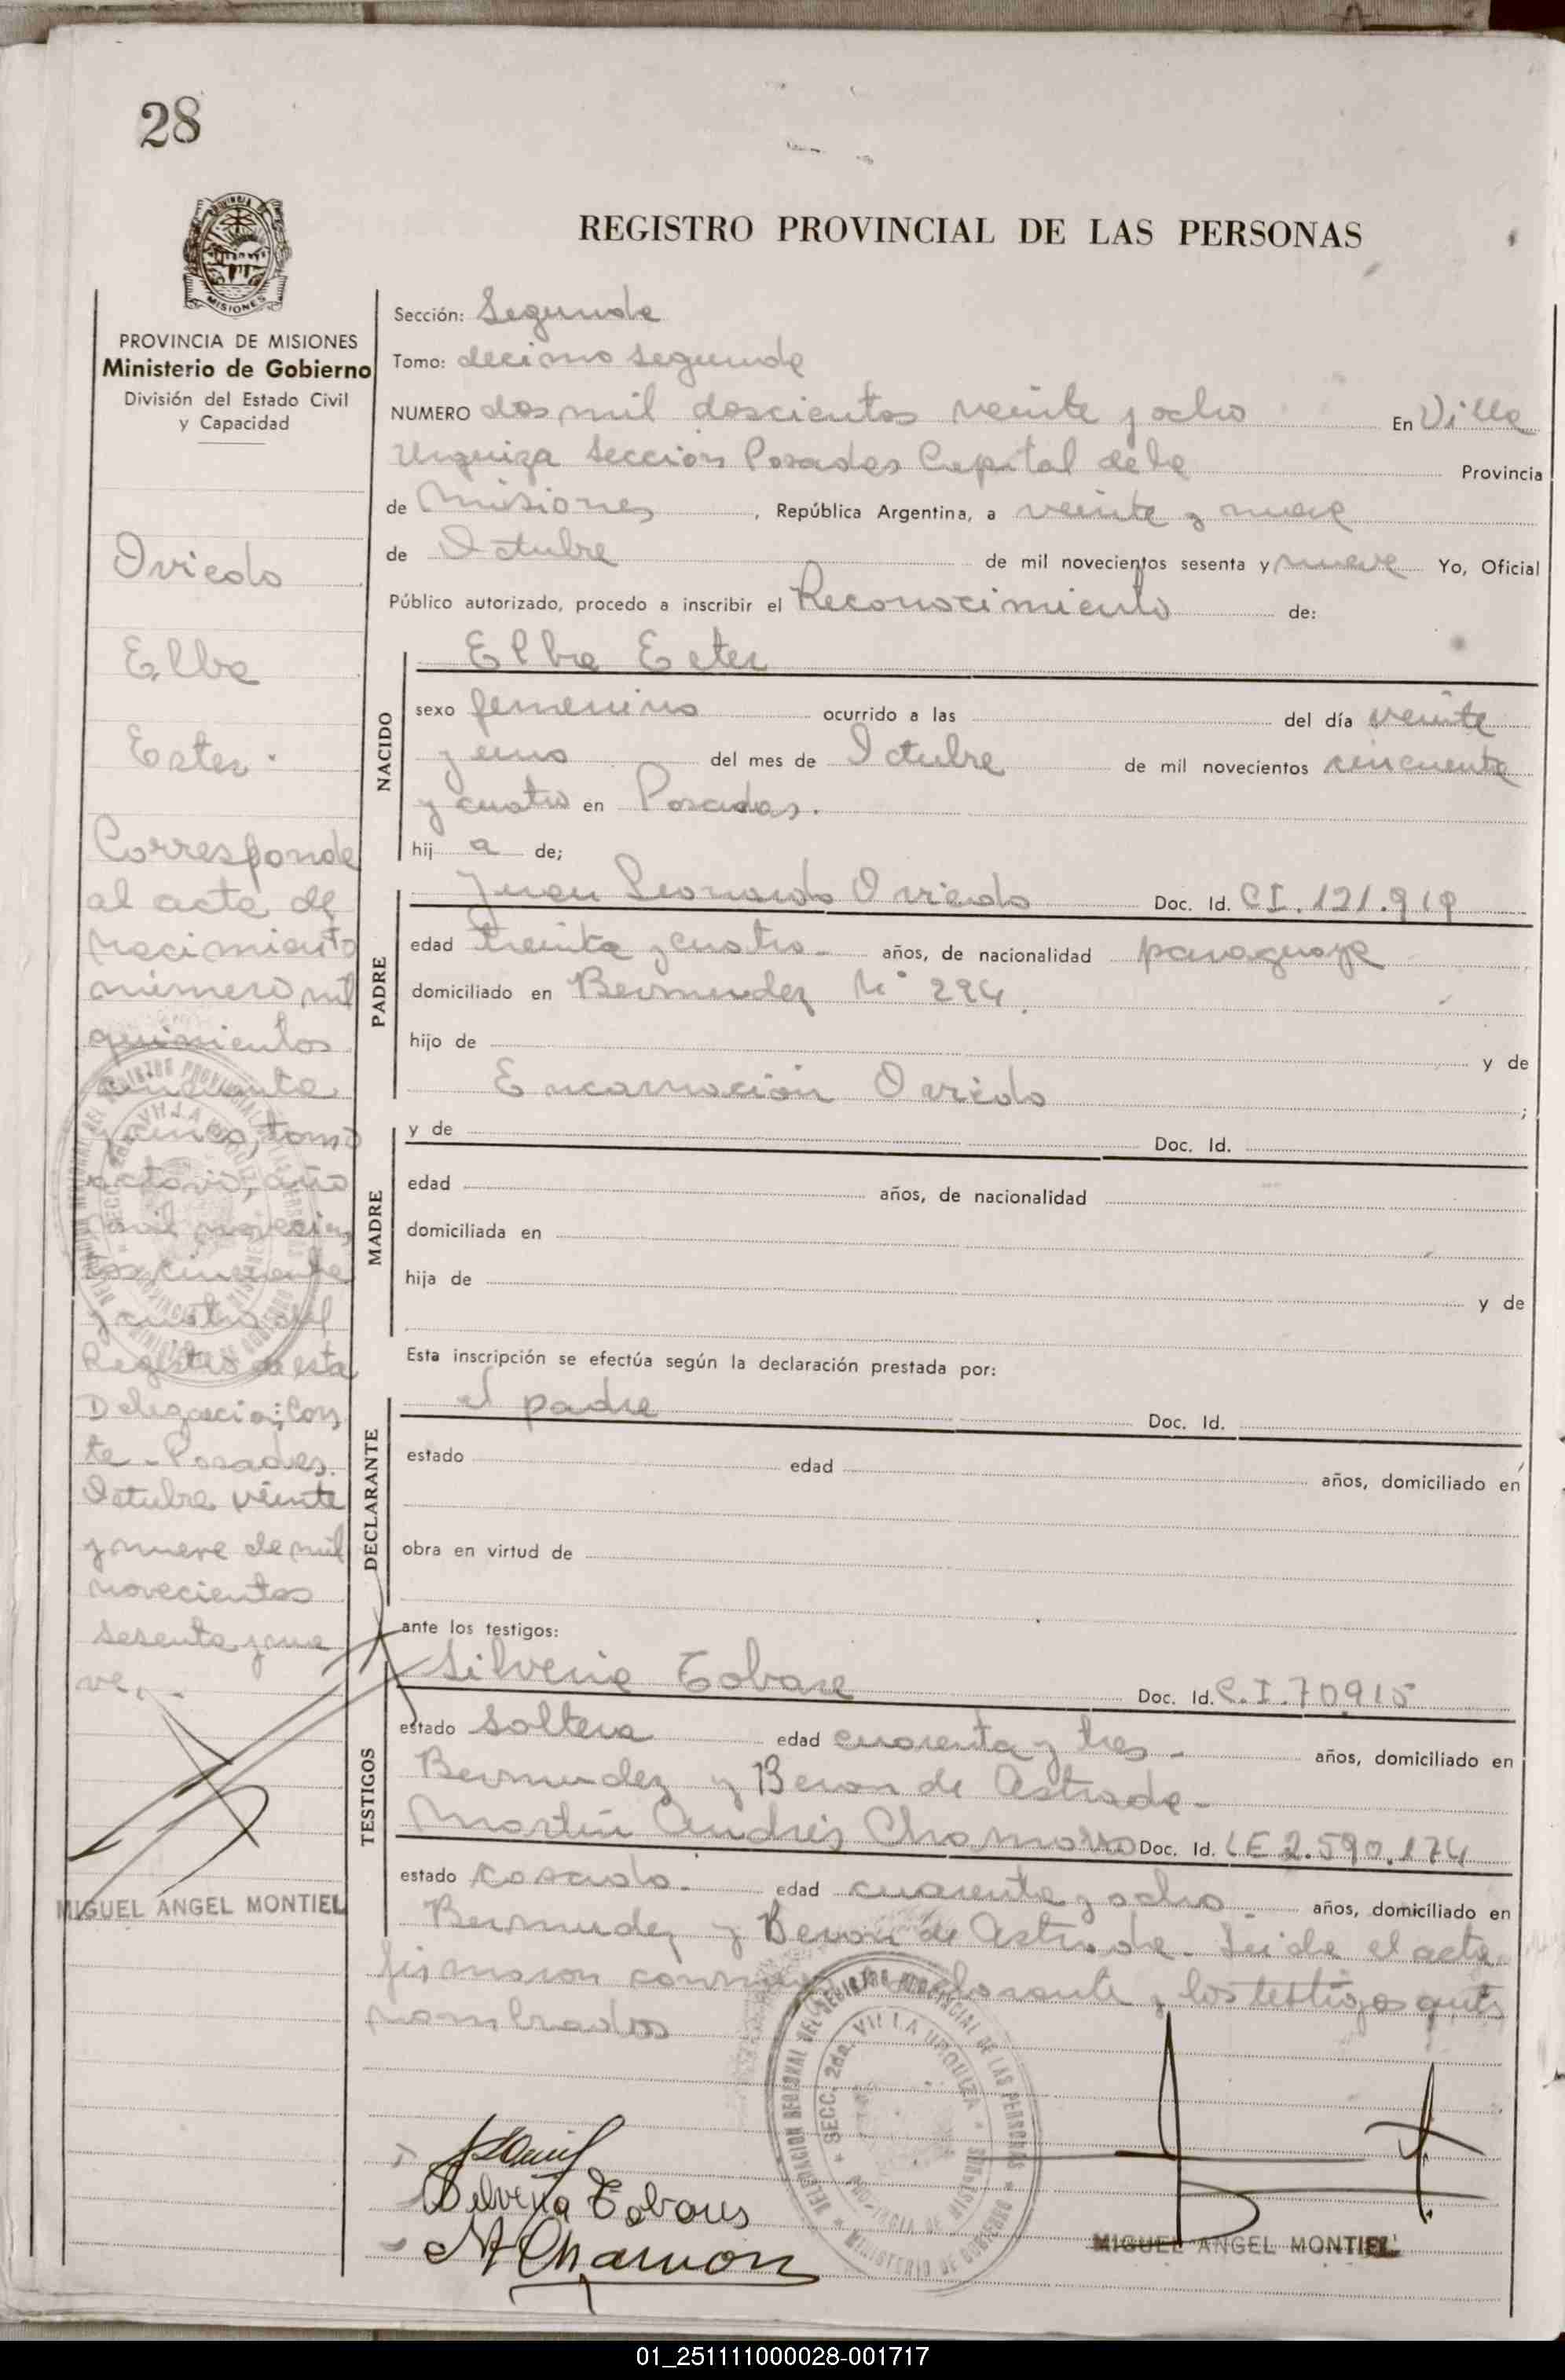 28
REGISTRO PROVINCIAL DE LAS PERSONAS
MISIONES
PROVINCIA DE MISIONES
Ministerio de Gobierno
División del Estado Civil
y Capacidad
Oviedo
Elba
Ester.
Corresponde
al acta de
nacimiento
número mil
quinientos
cincuenta
y cinco, tomo
octavo, año
mil novecien
tos cincuenta
y cuatro del
Registro de esta
Delegación; Cons
te - Posadas.
Octubre veinte
y nueve de mil
novecientos
sesenta y nue
ve.-
MIGUEL ANGEL MONTIEL
Sección: Segunda
Tomo: decimo segundo
NUMERO dos mil doscientos veinte y ocho En Villa
Urquiza Sección Posadas Capital de la Provincia
de Misiones, República Argentina, a veinte y nueve
de Octubre de mil novecientos sesenta y nueve Yo, Oficial
Público autorizado, procedo a inscribir el Reconocimiento de:
NACIDO
Elba Ester
sexo femenino ocurrido a las del día veinte
y uno del mes de Octubre de mil novecientos cincuenta
y cuatro en Posadas.
hij a de;
PADRE
Juan Leonardo Oviedo Doc. Id. CI. 121.919
edad treinta y cuatro- años, de nacionalidad paraguaya
domiciliado en Bermudez N° 294.
hijo de y de
Encarnación Oviedo ;
MADRE
y de Doc. Id.
edad años, de nacionalidad
domiciliada en
hija de y de
Esta inscripción se efectúa según la declaración prestada por:
DECLARANTE
el padre Doc. Id.
estado edad años, domiciliado en
obra en virtud de
ante los testigos:
TESTIGOS
Silveria Tobare Doc. Id. C.I.70915
estado soltera edad cuarenta y tres - años, domiciliado en
Bermudez y Beron de Astrada-
Martín Andrés Chamorro Doc. Id. LE 2.590.174
estado casado. edad cuarenta y ocho años, domiciliado en
Bermudez y Beron de Astrada - Leida el acta
firmaron conmigo declarante y los testigos antes
nombrados
DELEGACION REGIONAL DEL REGISTRO PROVINCIAL DE LAS PERSONAS
SECC. 2da. VILLA URQUIZA
PROVINCIA DE MISIONES
MINISTERIO DE GOBIERNO
Silveria Tobares
MIGUEL ANGEL MONTIEL
01_251111000028-001717